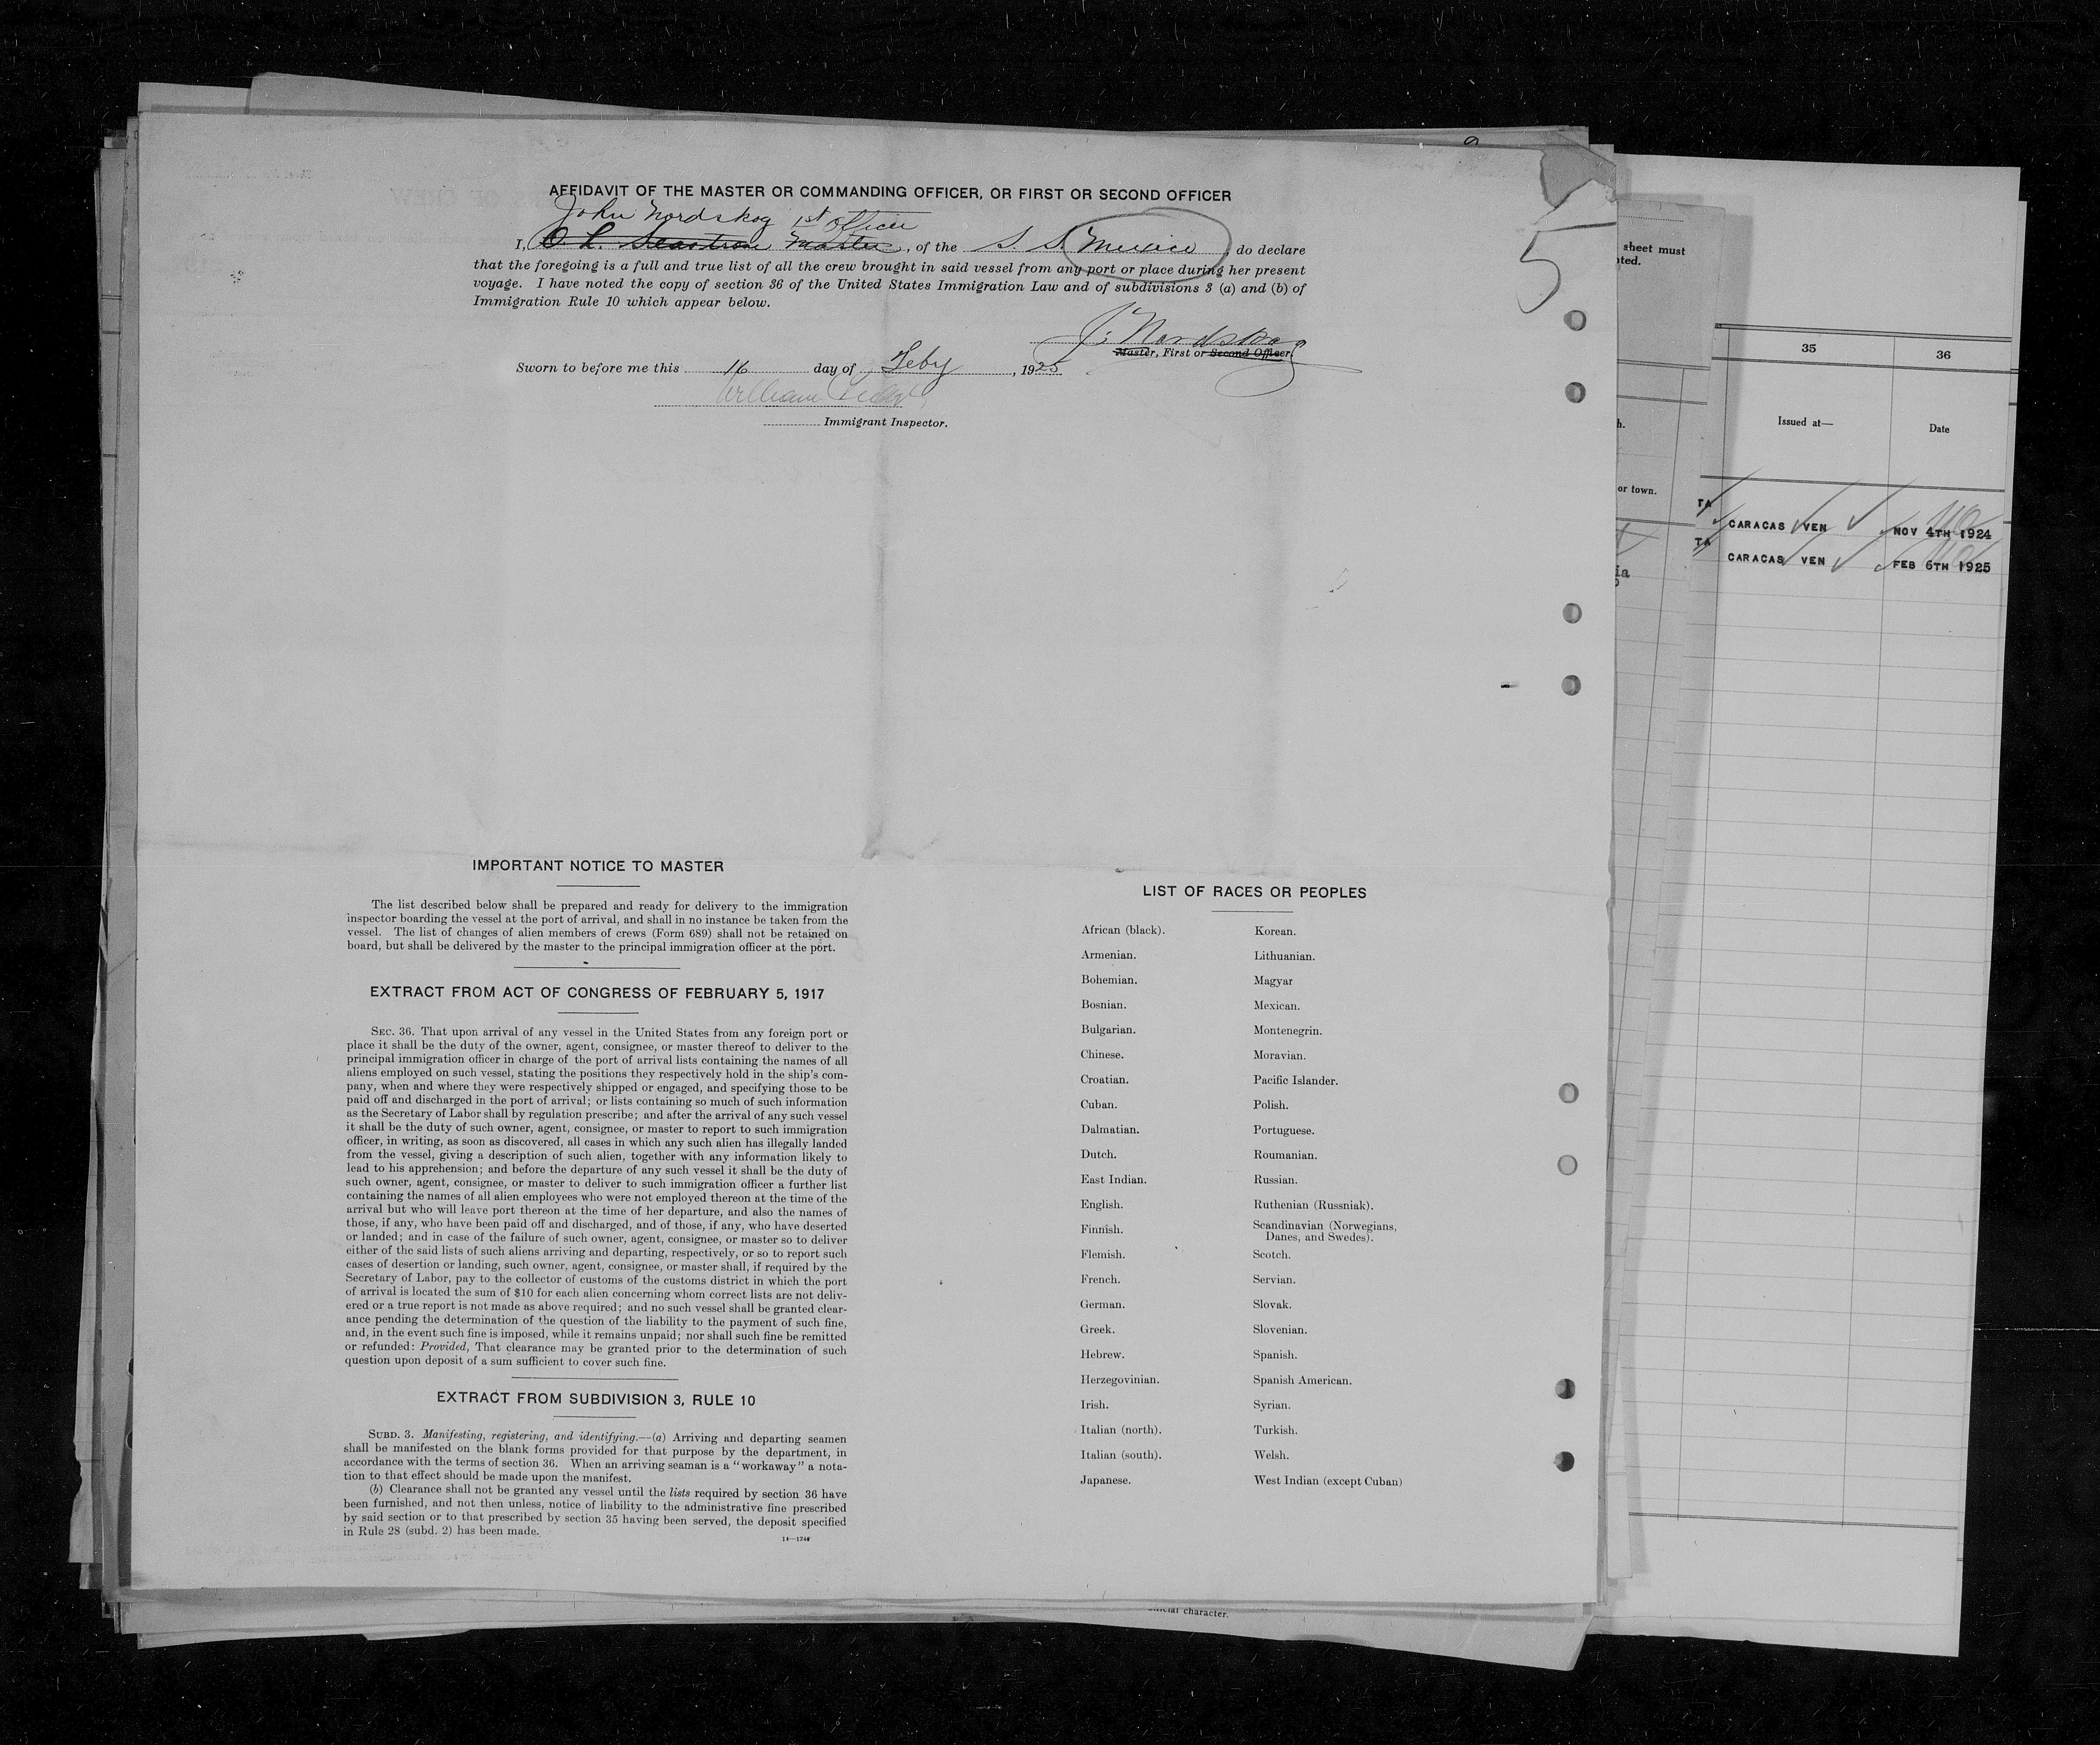 AFFIDAVIT OF THE MASTER OR COMMANDING OFFICER, OR FIRST OR SECOND OFFICER
John Nordskog 1st officer
I, O. L. Seastrom Master, of the S. S. Mexico, do declare
that the foregoing is a full and true list of all the crew brought in said vessel from any port or place during her present
voyage. I have noted the copy of section 36 of the United States Immigration Law and of subdivisions 3 (a) and (b) of
Immigration Rule 10 which appear below.
J. Nordskog
Master, First or Second Officer.
Sworn to before me this 16 day of Feby, 1925
William
Immigrant Inspector.
5
IMPORTANT NOTICE TO MASTER
The list described below shall be prepared and ready for delivery to the immigration
inspector boarding the vessel at the port of arrival, and shall in no instance be taken from the
vessel. The list of changes of alien members of crews (Form 689) shall not be retained on
board, but shall be delivered by the master to the principal immigration officer at the port.
EXTRACT FROM ACT OF CONGRESS OF FEBRUARY 5, 1917
SEC. 36. That upon arrival of any vessel in the United States from any foreign port or
place it shall be the duty of the owner, agent, consignee, or master thereof to deliver to the
principal immigration officer in charge of the port of arrival lists containing the names of all
aliens employed on such vessel, stating the positions they respectively hold in the ship's com-
pany, when and where they were respectively shipped or engaged, and specifying those to be
paid off and discharged in the port of arrival; or lists containing so much of such information
as the Secretary of Labor shall by regulation prescribe; and after the arrival of any such vessel
it shall be the duty of such owner, agent, consignee, or master to report to such immigration
officer, in writing, as soon as discovered, all cases in which any such alien has illegally landed
from the vessel, giving a description of such alien, together with any information likely to
lead to his apprehension; and before the departure of any such vessel it shall be the duty of
such owner, agent, consignee, or master to deliver to such immigration officer a further list
containing the names of all alien employees who were not employed thereon at the time of the
arrival but who will leave port thereon at the time of her departure, and also the names of
those, if any, who have been paid off and discharged, and of those, if any, who have deserted
or landed; and in case of the failure of such owner, agent, consignee, or master so to deliver
either of the said lists of such aliens arriving and departing, respectively, or so to report such
cases of desertion or landing, such owner, agent, consignee, or master shall, if required by the
Secretary of Labor, pay to the collector of customs of the customs district in which the port
of arrival is located the sum of $10 for each alien concerning whom correct lists are not deliv-
ered or a true report is not made as above required; and no such vessel shall be granted clear-
ance pending the determination of the question of the liability to the payment of such fine,
and, in the event such fine is imposed, while it remains unpaid; nor shall such fine be remitted
or refunded: Provided, That clearance may be granted prior to the determination of such
question upon deposit of a sum sufficient to cover such fine.
EXTRACT FROM SUBDIVISION 3, RULE 10
SUBD. 3. Manifesting, registering, and identifying.—(a) Arriving and departing seamen
shall be manifested on the blank forms provided for that purpose by the department, in
accordance with the terms of section 36. When an arriving seaman is a "workaway" a nota-
tion to that effect should be made upon the manifest.
(b) Clearance shall not be granted any vessel until the lists required by section 36 have
been furnished, and not then unless, notice of liability to the administrative fine prescribed
by said section or to that prescribed by section 35 having been served, the deposit specified
in Rule 28 (subd. 2) has been made.
14—1246
LIST OF RACES OR PEOPLES
African (black). Korean.
Armenian. Lithuanian.
Bohemian. Magyar
Bosnian. Mexican.
Bulgarian. Montenegrin.
Chinese. Moravian.
Croatian. Pacific Islander.
Cuban. Polish.
Dalmatian. Portuguese.
Dutch. Roumanian.
East Indian. Russian.
English. Ruthenian (Russniak).
Finnish. Scandinavian (Norwegians,
Danes, and Swedes).
Flemish. Scotch.
French. Servian.
German. Slovak.
Greek. Slovenian.
Hebrew. Spanish.
Herzegovinian. Spanish American.
Irish. Syrian.
Italian (north). Turkish.
Italian (south). Welsh.
Japanese. West Indian (except Cuban)
sheet must
or town.
35 36
Issued at— Date
CARACAS VEN NOV 4TH 1924
CARACAS VEN FEB 6TH 1925
character.